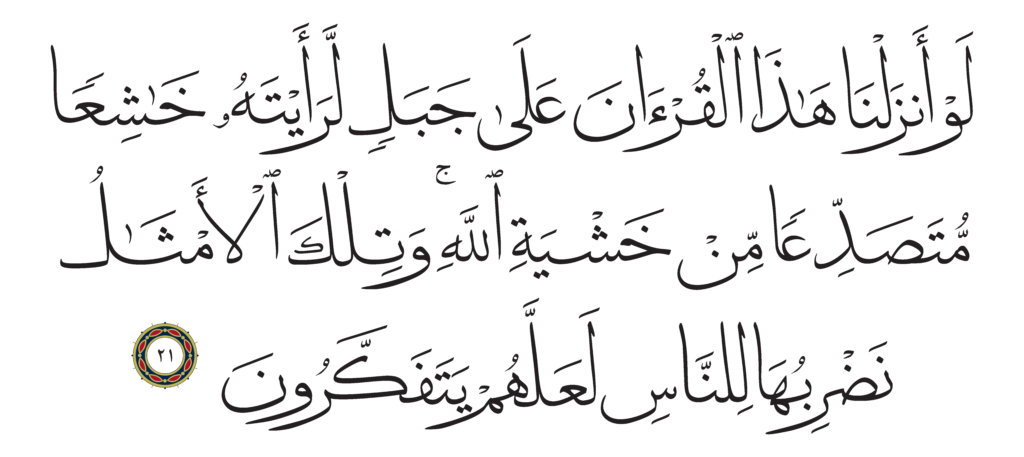 لَوْ أَنزَلْنَا هَـٰذَا ٱلْقُرْءَانَ عَلَىٰ جَبَلٍ لَّرَأَيْتَهُۥ خَـٰشِعًا
مُّتَصَدِّعًا مِّنْ خَشْيَةِ ٱللَّهِ ۚ وَتِلْكَ ٱلْأَمْثَـٰلُ
نَضْرِبُهَا لِلنَّاسِ لَعَلَّهُمْ يَتَفَكَّرُونَ ٢١